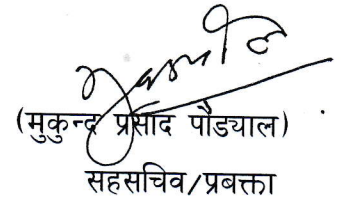 (मुकुन्द प्रसाद पौड्याल)
सहसचिव/प्रबक्ता